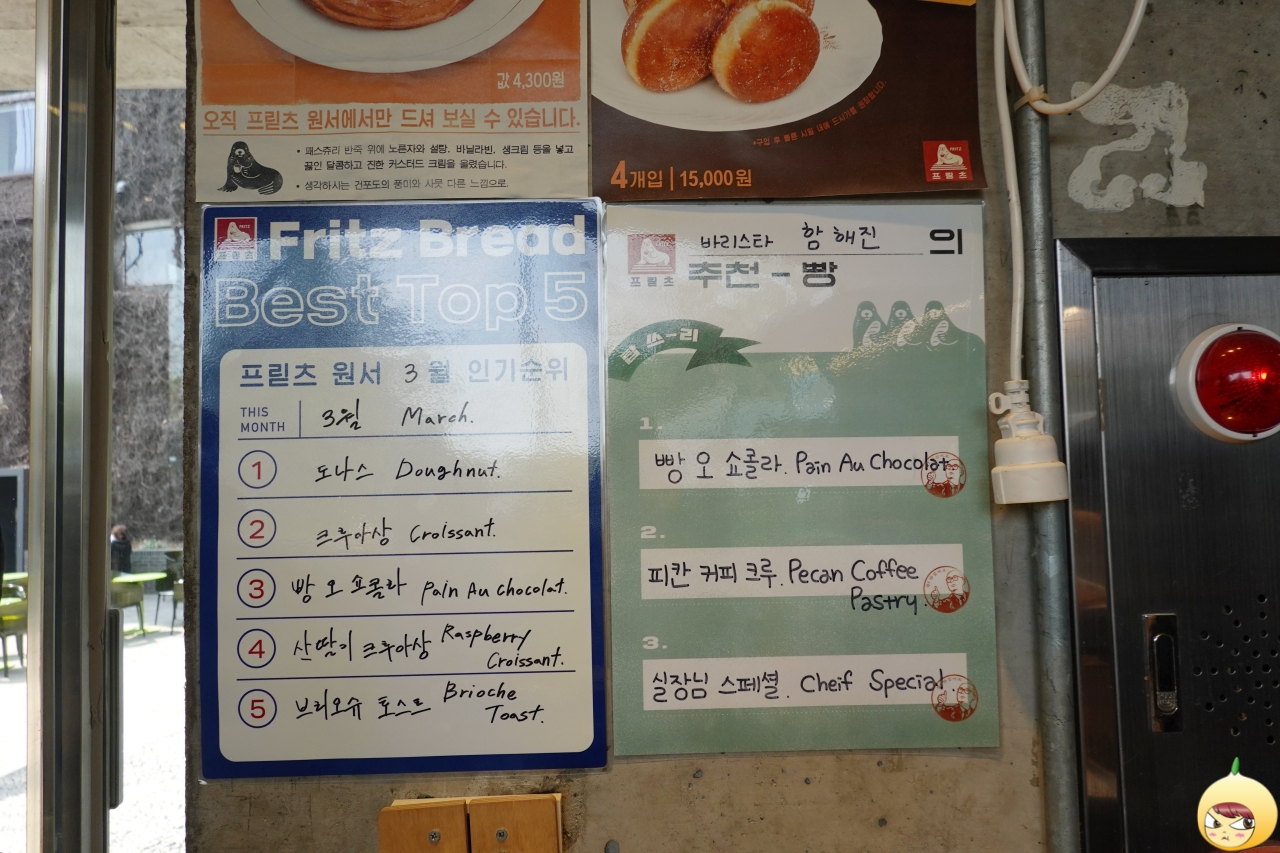 값 4,300원
오직 프릳츠 원서에서만 드셔 보실 수 있습니다.
• 패스츄리 반죽 위에 노른자와 설탕, 바닐라빈, 생크림 등을 넣고
끓인 달콤하고 진한 커스터드 크림을 올렸습니다.
• 생각하시는 건포도의 풍미와 사뭇 다른 느낌으로.
4개입 | 15,000원
FRITZ
프릳츠
FRITZ
프릳츠
Fritz Bread
Best Top 5
프릳츠 원서 3월 인기순위
THIS MONTH 3월 March.
1 도나스 Doughnut.
2 크루아상 Croissant.
3 빵 오 쇼콜라 Pain Au Chocolat.
4 산딸기 크루아상 Raspberry
Croissant.
5 브리오슈 토스트 Brioche
Toast.
프릳츠
바리스타 함해진 의
추천-빵
1.
빵 오 쇼콜라. Pain Au Chocolat.
2.
피칸 커피 크루. Pecan Coffee
Pastry.
3.
실장님 스페셜. Cheif Special.